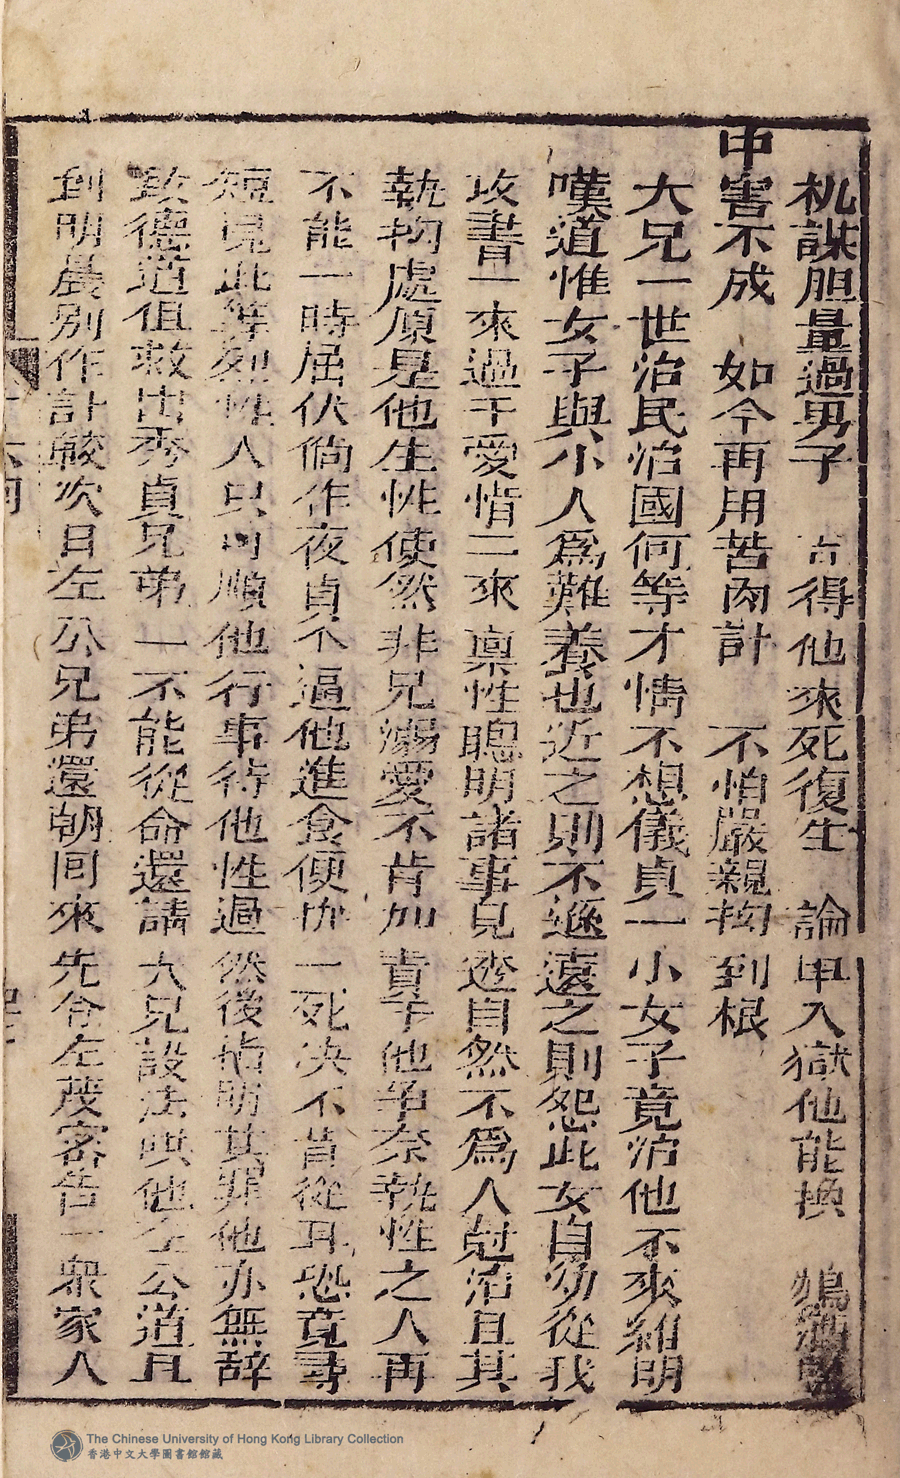 机謀胆量過男子　得他來死復生　論申入獄他能換　鴆酒
申害不成　如今再用苦肉計　不怕嚴親拘到根
大兄一世治民治國何等才情不想儀貞一小女子竟治他不來維明
嘆道惟女子與小人為難養也近之則不遜遠之則怨此女自幼從我
攻書一來過于愛惜二來稟性聰明諸事見透自然不為人尅治且其
執拘處原是他生性使然非兄溺愛不肯加責于他爭奈執性之人再
不能一時屈伏倘作夜貞不逼他進食便也一死决不肯從耳恐竟尋
短見此等烈性人只可順他行事待他性過然後指明其罪他亦無辞
致德道但救出秀貞兄弟一不能從命還請大兄設法哄他左公道且
到明晨別作計較次日左公兄弟還朝囘來先令左茂密告一衆家人
The Chinese University of Hong Kong Library Collection
香港中文大學圖書館館藏